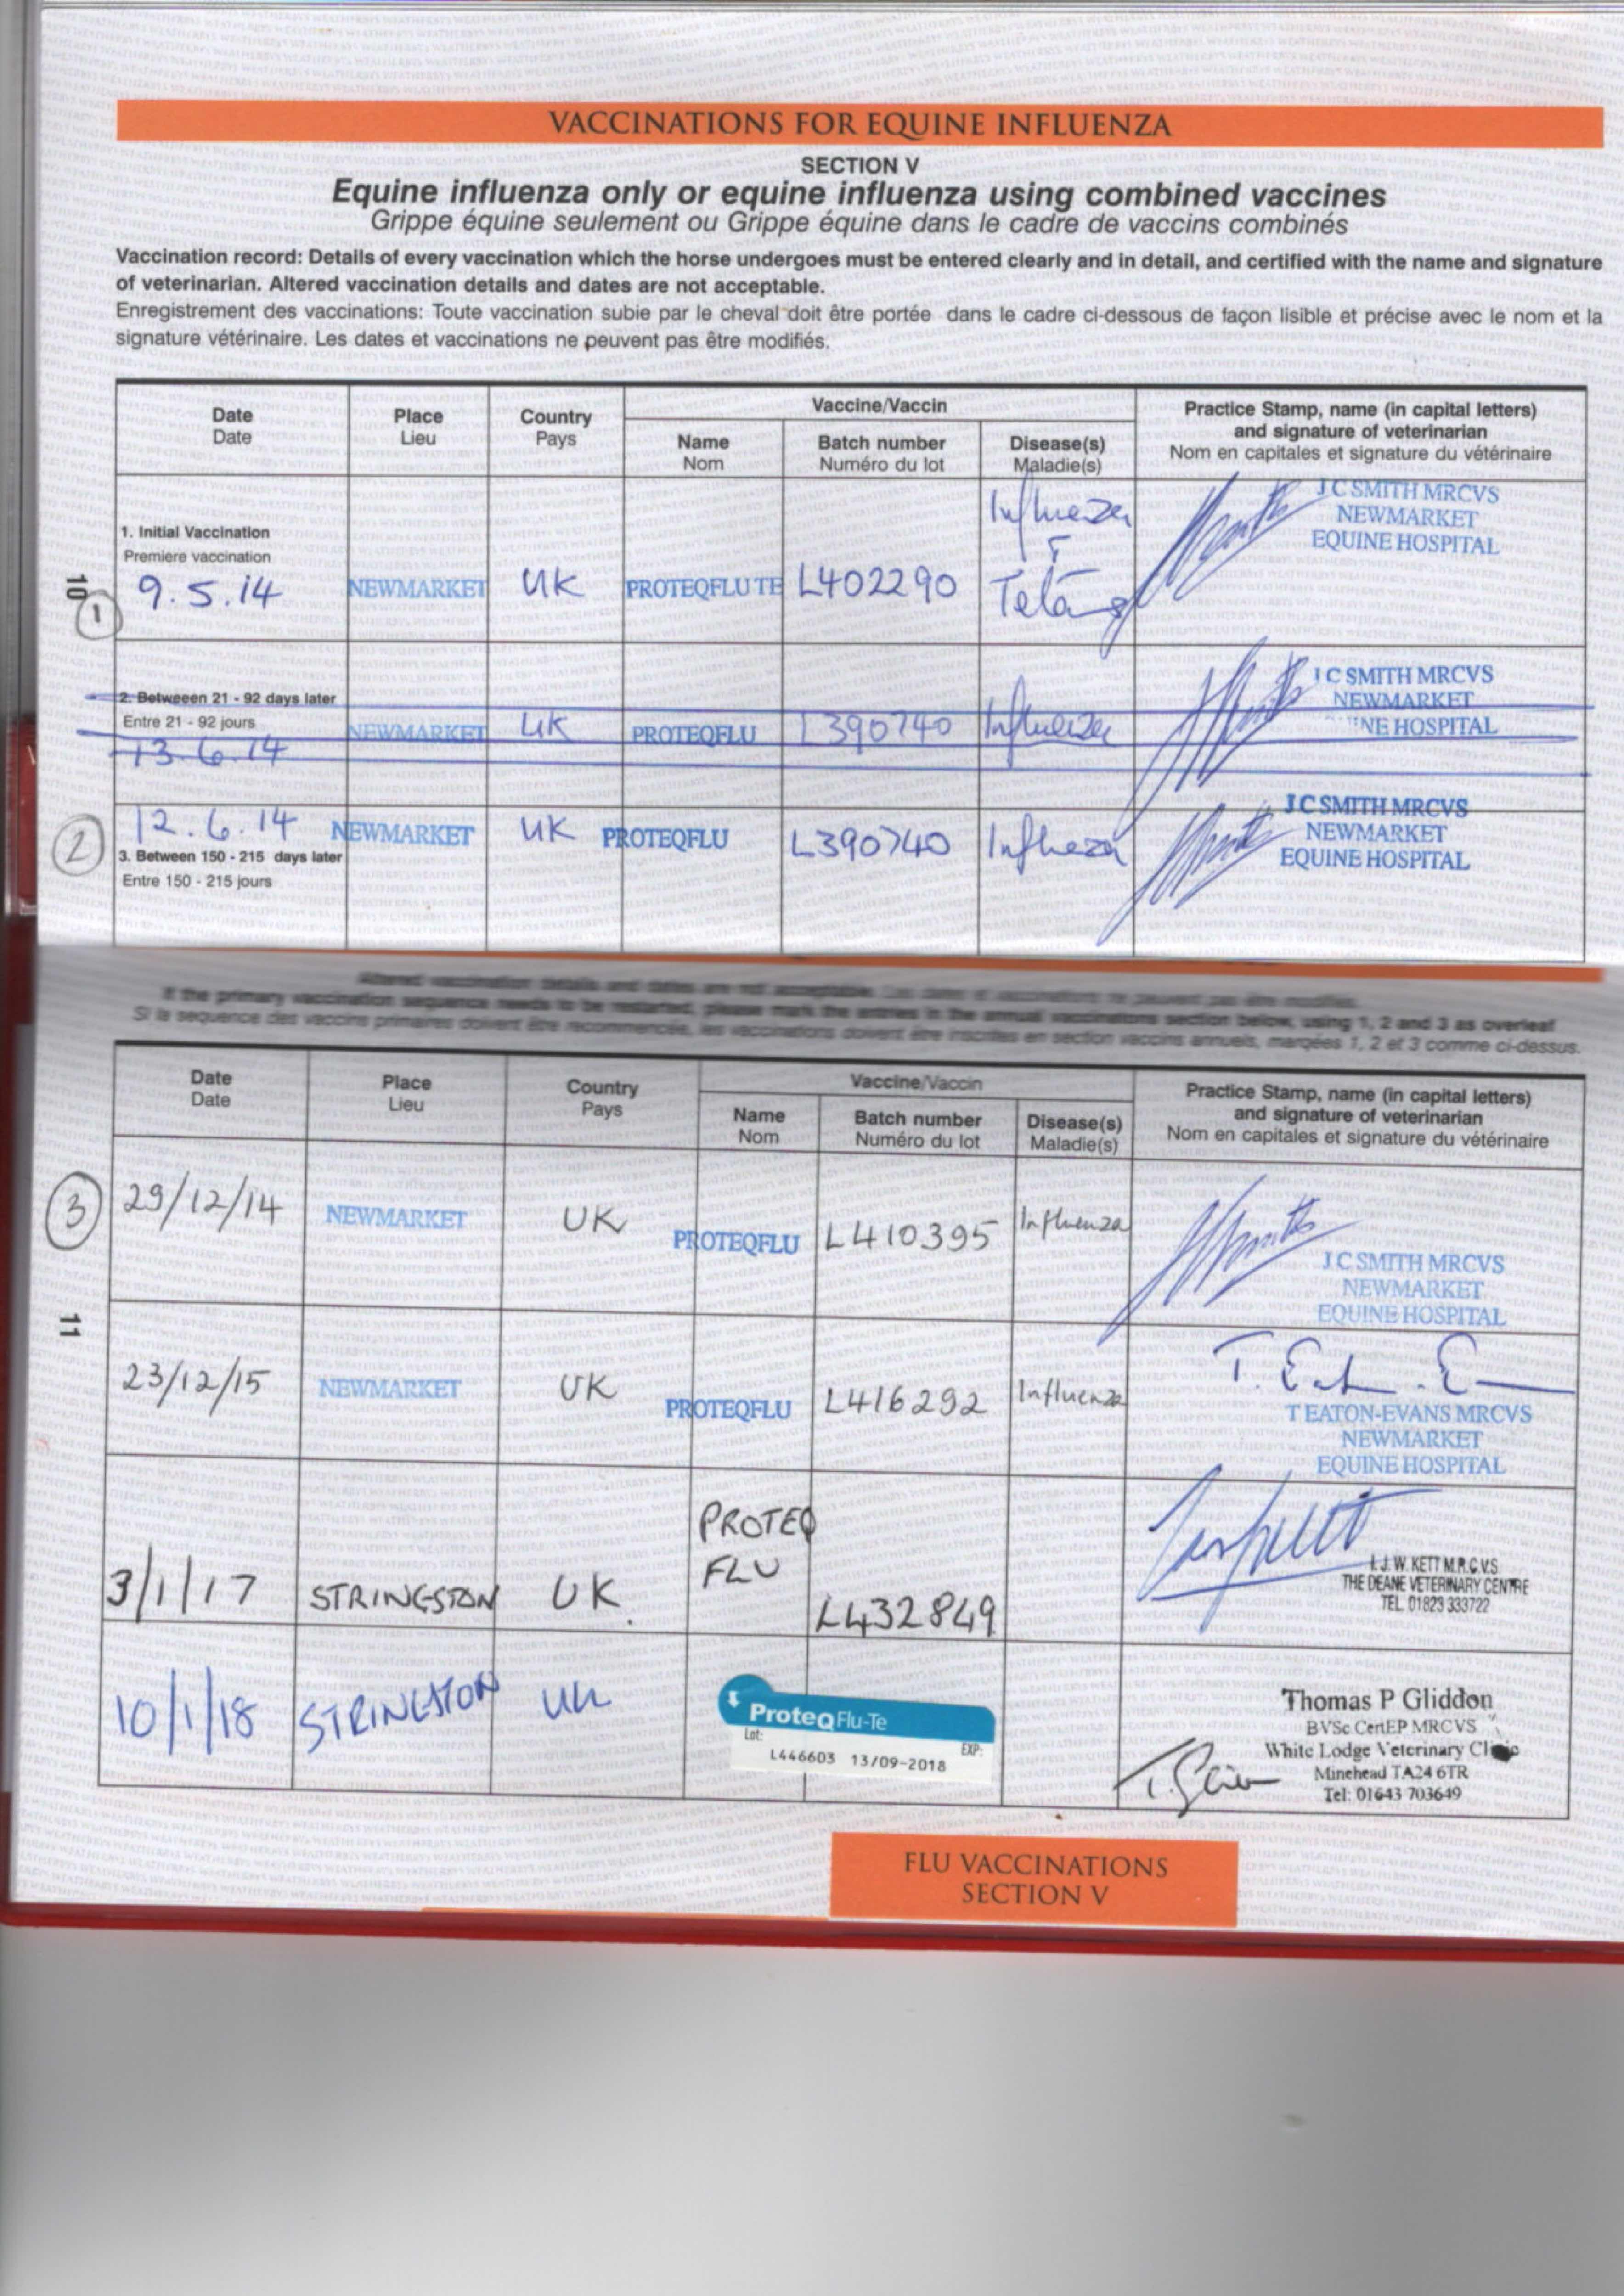 VACCINATIONS FOR EQUINE INFLUENZA
SECTION V
Equine influenza only or equine influenza using combined vaccines
Grippe équine seulement ou Grippe équine dans le cadre de vaccins combinés
Vaccination record: Details of every vaccination which the horse undergoes must be entered clearly and in detail, and certified with the name and signature
of veterinarian. Altered vaccination details and dates are not acceptable.
Enregistrement des vaccinations: Toute vaccination subie par le cheval doit être portée dans le cadre ci-dessous de façon lisible et précise avec le nom et la
signature vétérinaire. Les dates et vaccinations ne peuvent pas être modifiés.
Date Place Country Vaccine/Vaccin Practice Stamp, name (in capital letters)
Date Lieu Pays Name Batch number Disease(s) and signature of veterinarian
Nom Numéro du lot Maladie(s) Nom en capitales et signature du vétérinaire
1. Initial Vaccination
Premiere vaccination
10
1
9.5.14 NEWMARKET UK PROTEQFLU TE L402290 Influenza
J C SMITH MRCVS
NEWMARKET
EQUINE HOSPITAL
2. Betweeen 21 - 92 days later
Entre 21 - 92 jours
13.6.14 NEWMARKET UK PROTEQFLU L390740 Influenza
J C SMITH MRCVS
NEWMARKET
NE HOSPITAL
2
12.6.14 NEWMARKET UK PROTEQFLU L390740 Influenza
3. Between 150 - 215 days later
Entre 150 - 215 jours
J C SMITH MRCVS
NEWMARKET
EQUINE HOSPITAL
Altered vaccination details and dates are not acceptable. Les dates et vaccinations ne peuvent pas être modifiés.
If the primary vaccination sequence needs to be restarted, please mark the entries in the annual vaccinations section below, using 1, 2 and 3 as overleaf
Si le sequence des vaccins primaires doivent être recommencée, les vaccinations doivent être inscrites en section vaccins annuels, marqées 1, 2 et 3 comme ci-dessus.
Date Place Country Vaccine/Vaccin Practice Stamp, name (in capital letters)
Date Lieu Pays Name Batch number Disease(s) and signature of veterinarian
Nom Numéro du lot Maladie(s) Nom en capitales et signature du vétérinaire
3
29/12/14 NEWMARKET UK PROTEQFLU L410395 Influenza
J C SMITH MRCVS
NEWMARKET
EQUINE HOSPITAL
11
23/12/15 NEWMARKET UK PROTEQFLU L416292 Influenza
T EATON-EVANS MRCVS
NEWMARKET
EQUINE HOSPITAL
PROTEQ
FLU
3/1/17 STRINGSTON UK. L432849
I. J. W. KETT M.R.C.V.S.
THE DEANE VETERINARY CENTRE
TEL 01823 333722
10/1/18 STRINGSTON UK
ProteqFlu-Te
Lot: EXP:
L446603 13/09-2018
Thomas P Gliddon
BVSc CertEP MRCVS
White Lodge Veterinary Clinic
Minehead TA24 6TR
Tel: 01643 703649
FLU VACCINATIONS
SECTION V